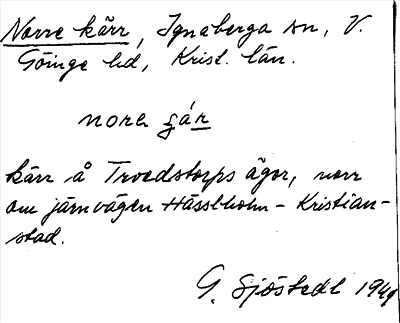 Norre kärr, Ignaberga sn, V.
Göinge hd, Krist. län.
nora gár
kärr å Troedstorps ägor, norr
om järnvägen Hässleholm - Kristian-
stad.
G. Sjöstedt 1949